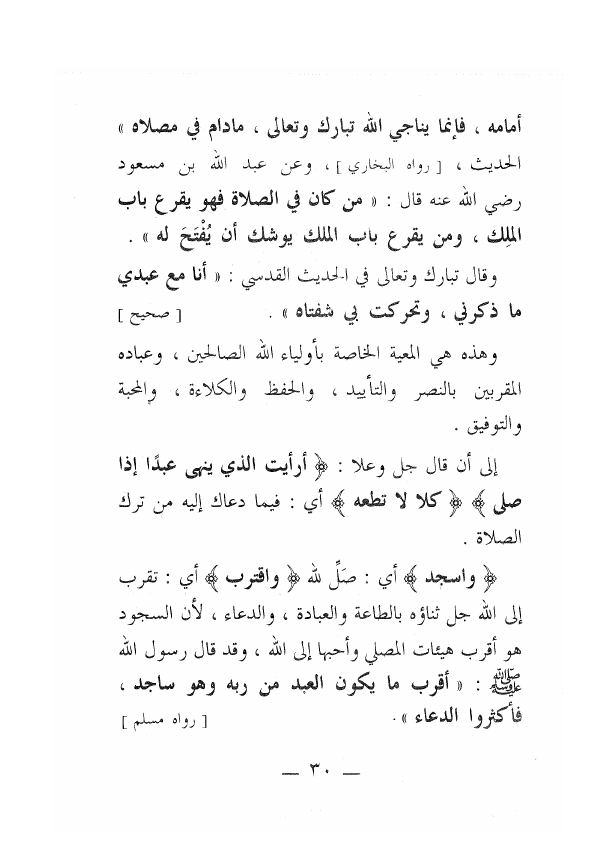 أمامه ، فإنما يناجي الله تبارك وتعالى ، مادام في مصلاه »
الحديث ، [ رواه البخاري ] ، وعن عبد الله بن مسعود
رضي الله عنه قال : « من كان في الصلاة فهو يقرع باب
الملِك ، ومن يقرع باب الملك يوشك أن يُفْتَحَ له » .
وقال تبارك وتعالى في الحديث القدسي : « أنا مع عبدي
ما ذكرني ، وتحركت بي شفتاه » . [ صحيح ]
وهذه هي المعية الخاصة بأولياء الله الصالحين ، وعباده
المقربين بالنصر والتأييد ، والحفظ والكلاءة ، والمحبة
والتوفيق .
إلى أن قال جل وعلا : ﴿ أرأيت الذي ينهى عبدًا إذا
صلى ﴾ ﴿ كلا لا تطعه ﴾ أي : فيما دعاك إليه من ترك
الصلاة .
﴿ واسجد ﴾ أي : صَلِّ لله ﴿ واقترب ﴾ أي : تقرب
إلى الله جل ثناؤه بالطاعة والعبادة ، والدعاء ، لأن السجود
هو أقرب هيئات المصلي وأحبها إلى الله ، وقد قال رسول الله
ﷺ : « أقرب ما يكون العبد من ربه وهو ساجد ،
فأكثروا الدعاء » . [ رواه مسلم ]
— ٣٠ —